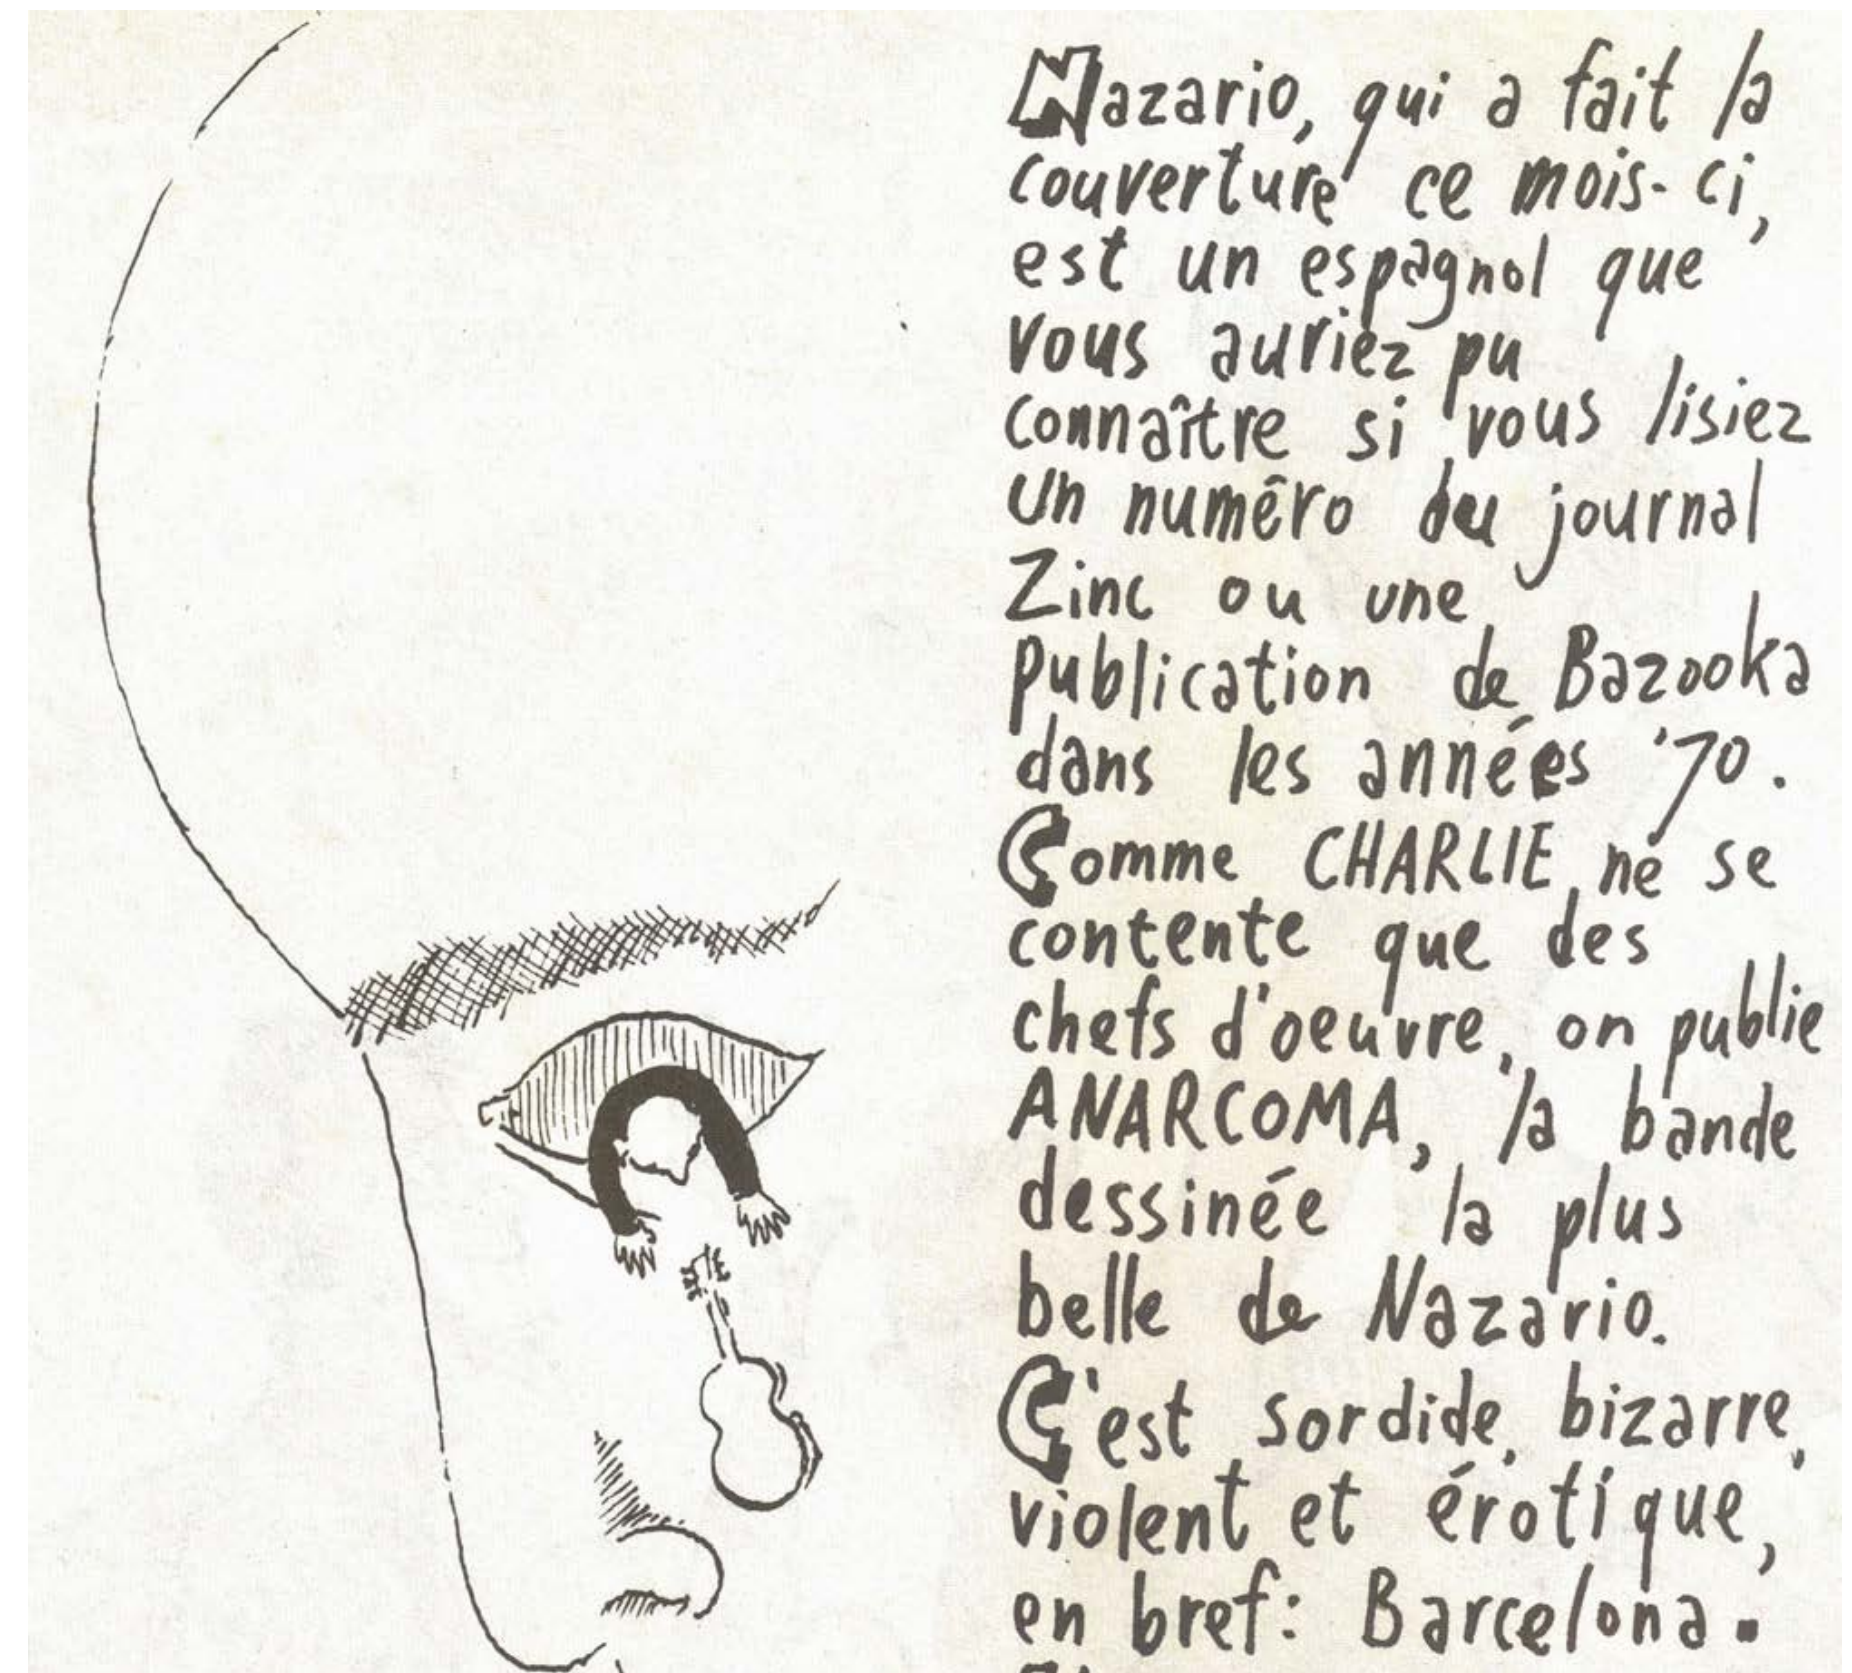 Nazario, qui a fait la
couverture ce mois-ci,
est un espagnol que
vous auriez pu
connaître si vous lisiez
un numéro du journal
Zinc ou une
publication de Bazooka
dans les années '70.
Comme CHARLIE ne se
contente que des
chefs d'oeuvre, on publie
ANARCOMA, la bande
dessinée la plus
belle de Nazario.
C'est sordide, bizarre,
violent et érotique,
en bref: Barcelona.